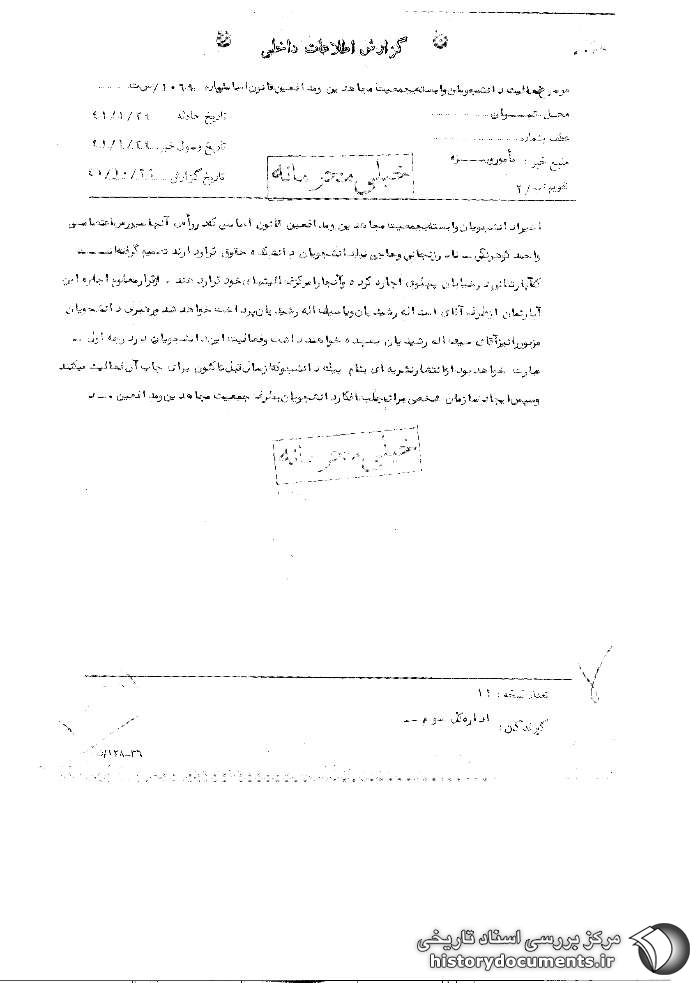 گزارش اطلاعات داخلی
موضوع فعالیت دانشجویان وابسته بجمعیت مجاهدین و مدافعین قانون اساسی شماره ۱۰۶۹ / س ت
محل تهران
تاریخ حادثه
عطف بشماره
تاریخ وصول خبر
منبع خبر : مأمور ویژه
تاریخ گزارش
تقویم
خیلی محرمانه
افراد دانشجویان وابسته بجمعیت مجاهدین و مدافعین قانون اساسی که در رأس آنها سیروس
واحمد و حاجی دانشجویان دانشکده حقوق قرار دارند تصمیم گرفته‌اند
که آپارتمانی در خیابان پهلوی اجاره کرده و آنجا را مرکز فعالیتهای خود قرار دهند . قرار معلوم اجاره این
آپارتمان از طرف آقای اسد اله رشیدیان و یا سیف اله رشیدیان پرداخت خواهد شد و رهبری دانشجویان
مزبور را نیز آقای سیف اله رشیدیان بعهده خواهد داشت و فعالیت این دانشجویان در درجه اول
عبارت خواهد بود از انتشار نشریه ای بنام دانشجو که از زمان قبل تاکنون برای چاپ آن فعالیت میکنند
و سپس ایجاد سازمان مشخصی برای جلب افکار دانشجویان بطرف جمعیت مجاهدین و مدافعین
خیلی محرمانه
تعداد نسخه : ۱۱
گیرندگان : اداره کل سوم
۵/۱۲۸-۳۶
مرکز بررسی اسناد تاریخی
historydocuments.ir